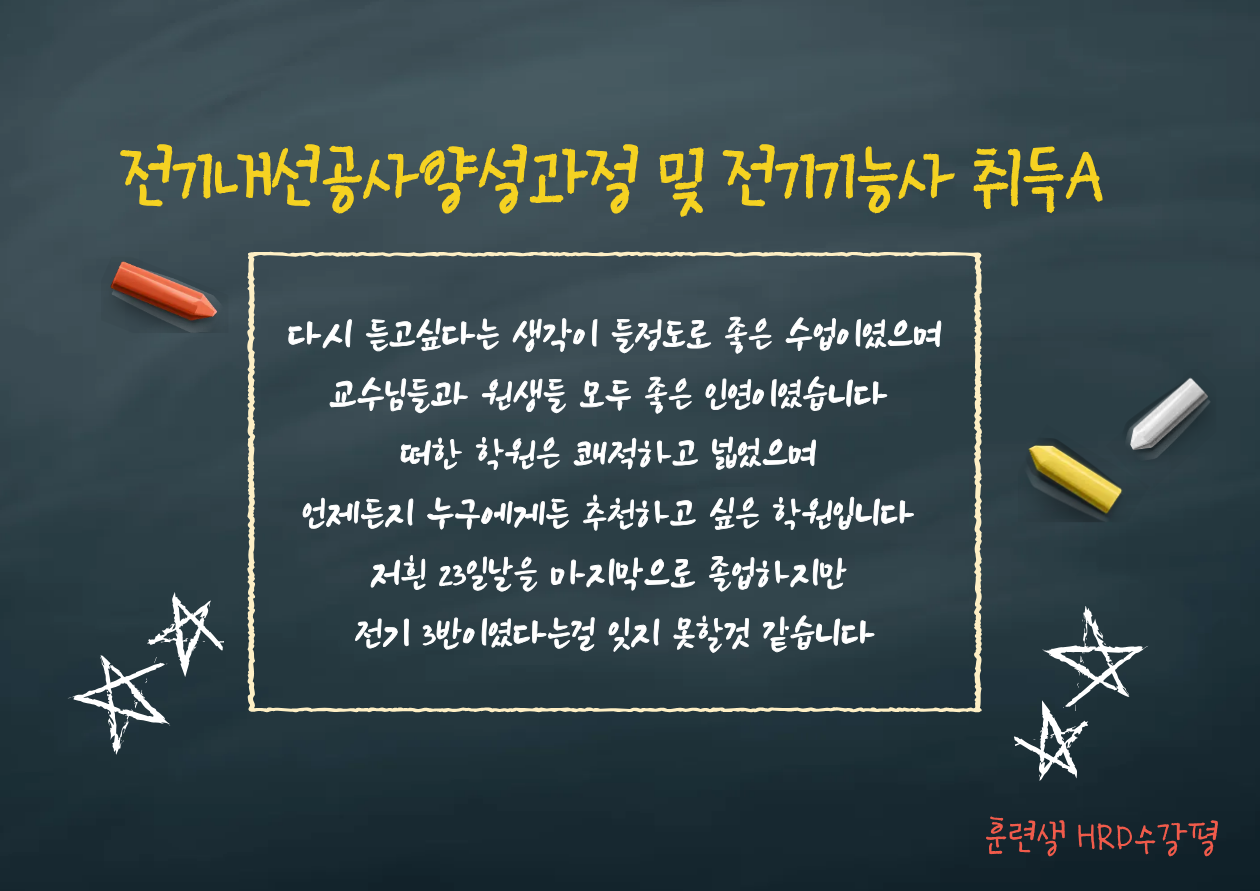 전기내선공사양성과정 및 전기기능사 취득A
다시 듣고싶다는 생각이 들정도로 좋은 수업이였으며
교수님들과 원생들 모두 좋은 인연이였습니다
떠한 학원은 쾌적하고 넓었으며
언제든지 누구에게든 추천하고 싶은 학원입니다
저흰 23일날을 마지막으로 졸업하지만
전기 3반이였다는걸 잊지 못할것 같습니다
훈련생 HRD수강평